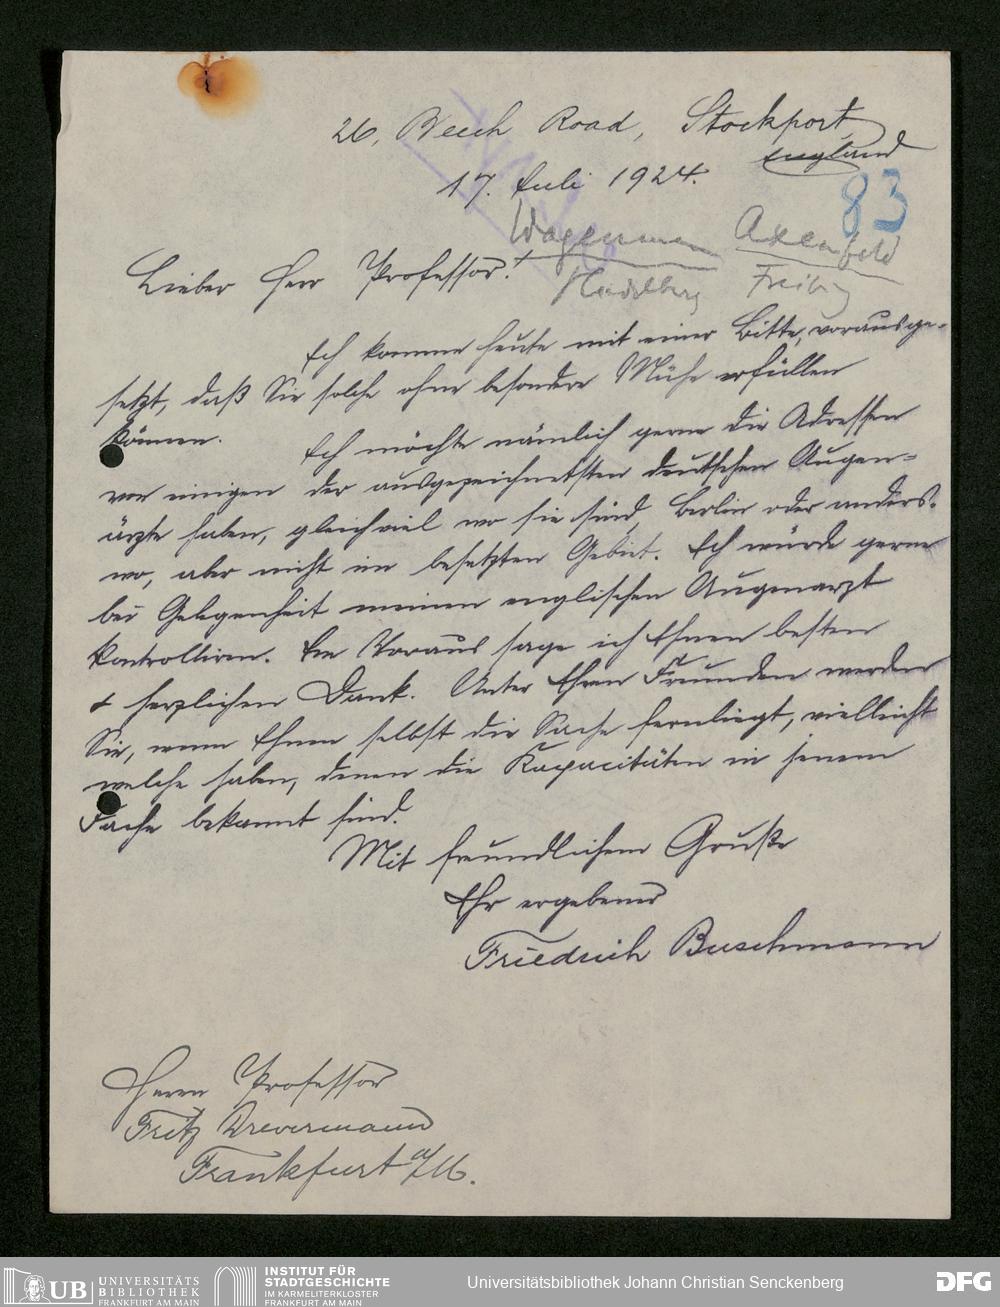 26, Beech Road, Stockport,
England
17. Juli 1924.
83
Wagenmann Axenfeld
Heidelberg Freiburg
Lieber Herr Professor!
Ich komme heute mit einer Bitte, vorausge-
setzt, daß Sie solche ohne besondere Mühe erfüllen
können.
Ich möchte nämlich gerne die Adressen
von einigen der ausgezeichnetsten deutschen Augen-
ärzte haben, gleichviel wo sie sind, Berlin oder anders-
wo, aber nicht im besetzten Gebiet. Ich würde gerne
bei Gelegenheit meinen englischen Augenarzt
kontrollieren. Im Voraus sage ich Ihnen besten
& herzlichen Dank. Unter Ihren Freunden werden
Sie, wenn Ihnen selbst die Sache fernliegt, vielleicht
welche haben, denen die Kapacitäten in jenem
Fache bekannt sind.
Mit freundlichem Gruße
Ihr ergebener
Friedrich Buschmann
Herrn Professor
Fritz Drevermann
Frankfurt a/M.
UB UNIVERSITÄTS
BIBLIOTHEK
FRANKFURT AM MAIN
INSTITUT FÜR
STADTGESCHICHTE
IM KARMELITERKLOSTER
FRANKFURT AM MAIN
Universitätsbibliothek Johann Christian Senckenberg
DFG